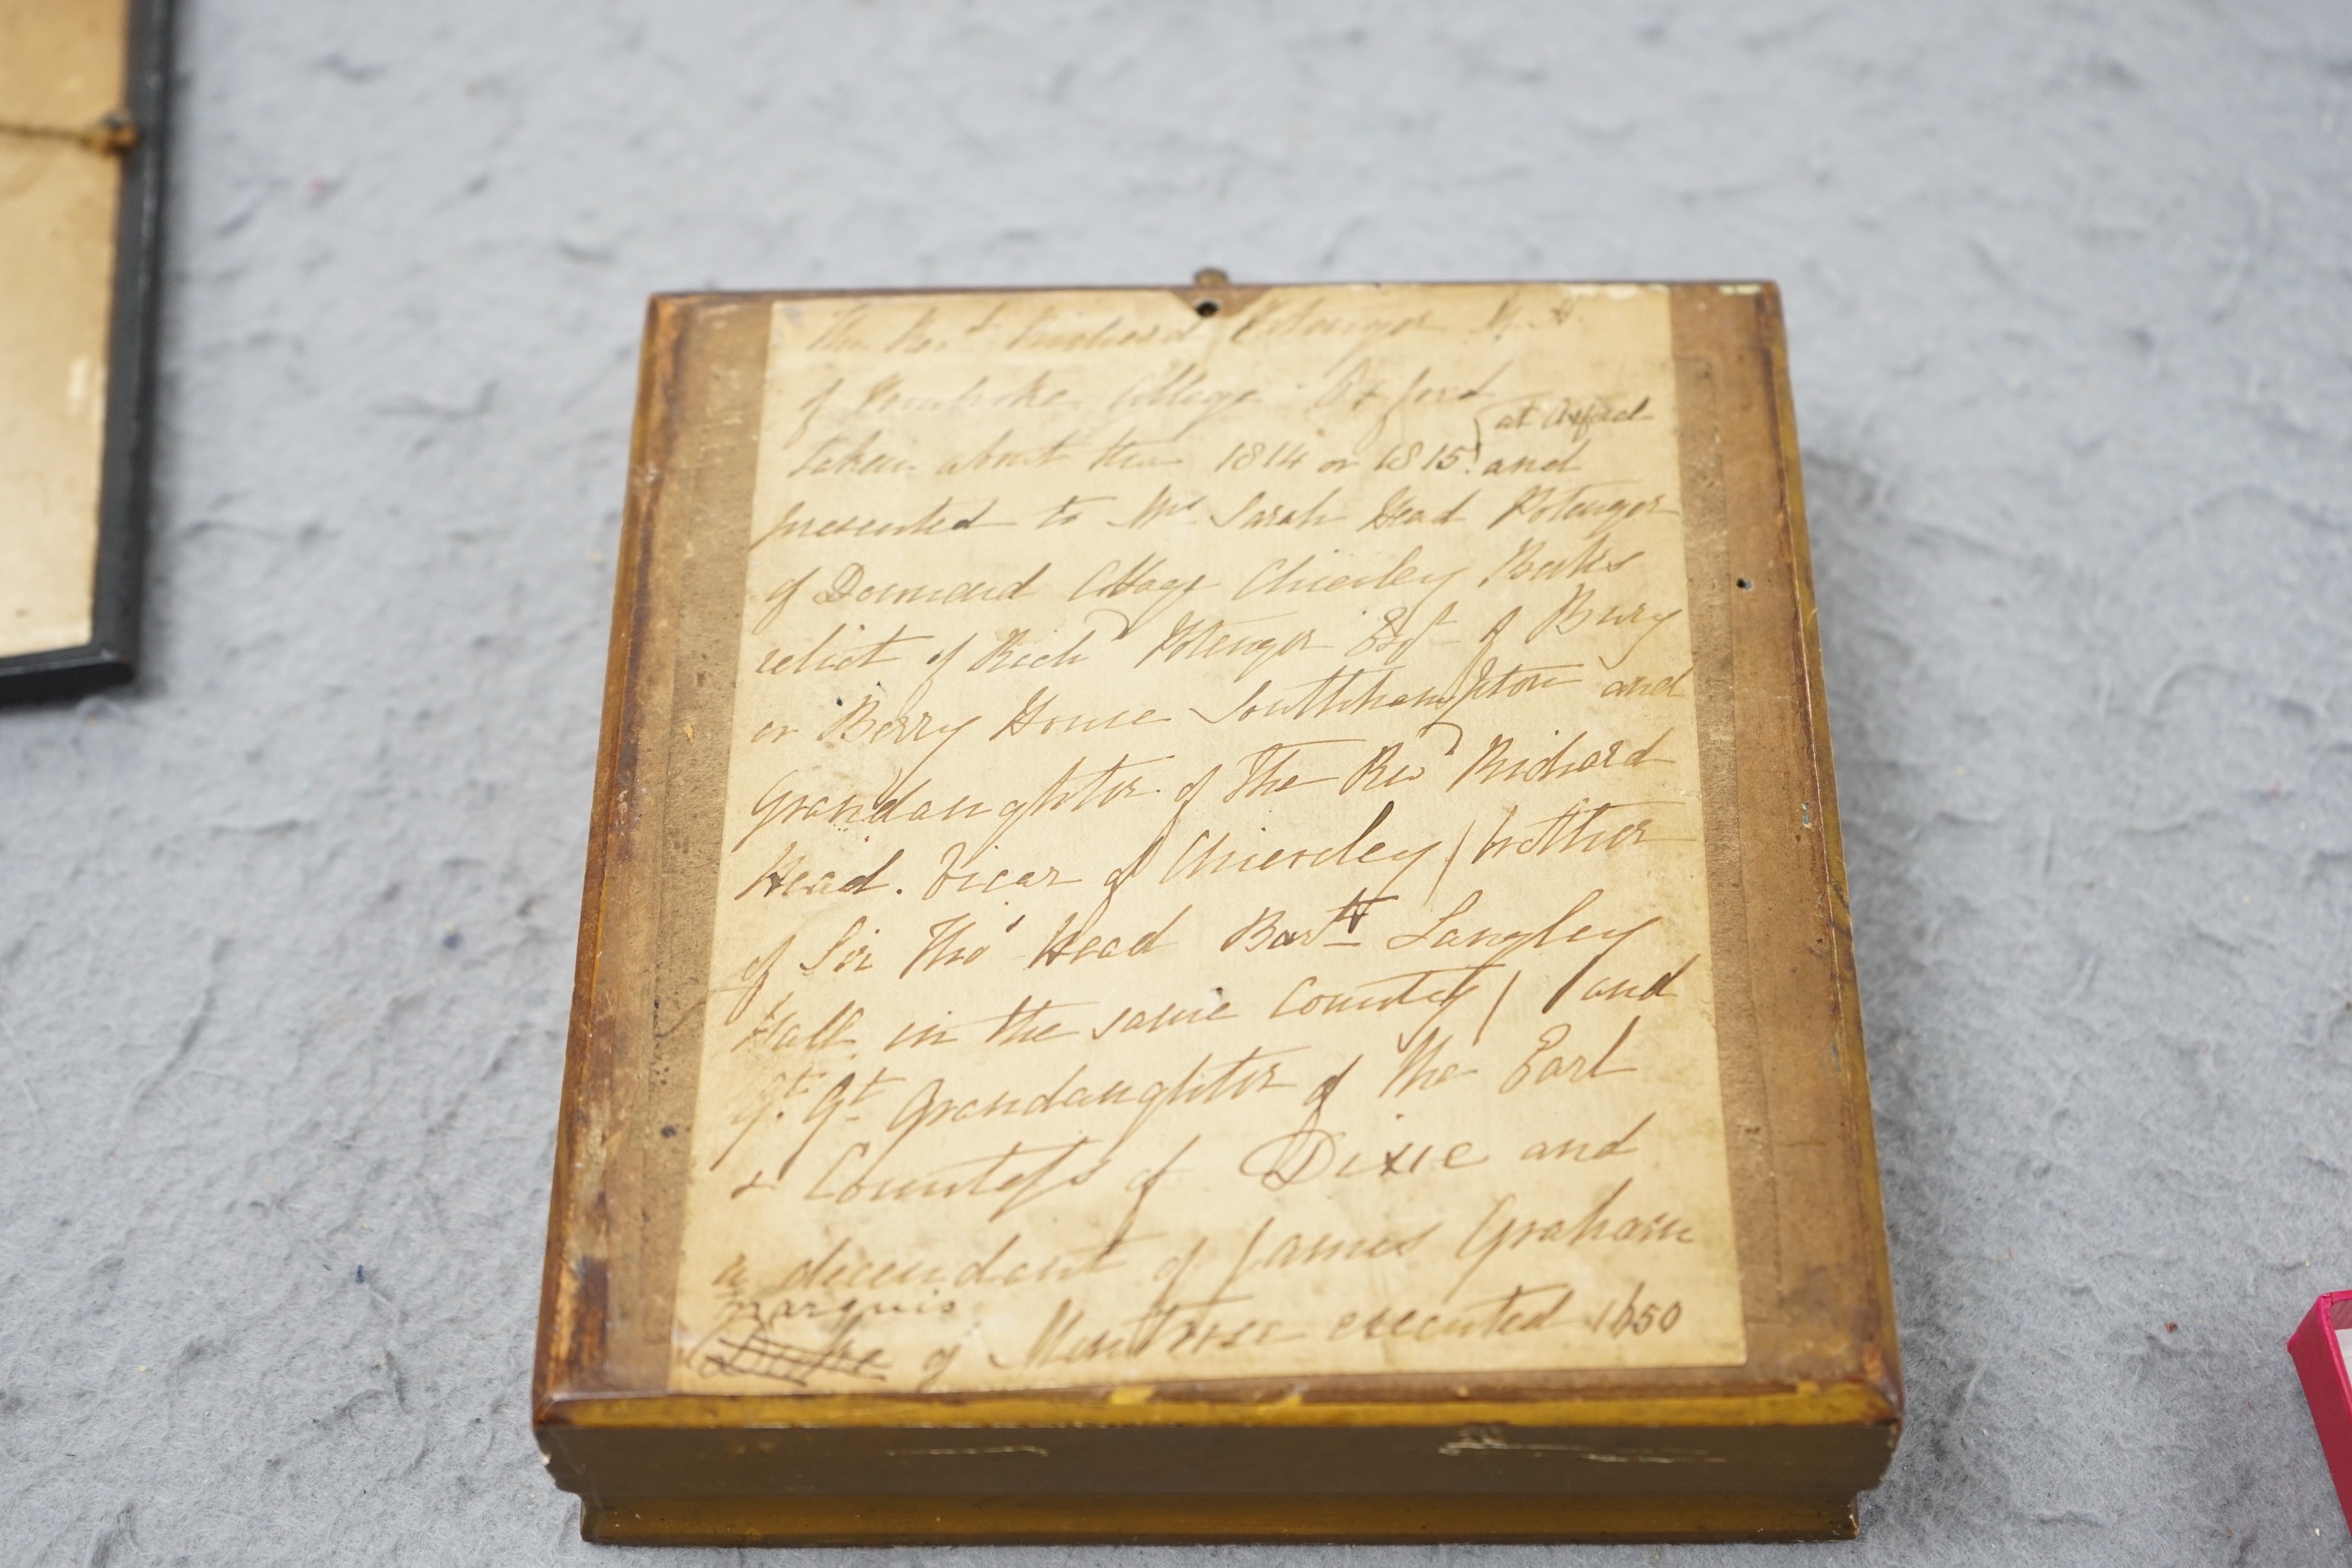 The Revd Richard Potenger M.A
of Pembroke College Oxford
at Oxford
taken about the 1814 or 1815 and
presented to Mrs Sarah Head Potenger
of Cottage Chieveley Berks
relict of Richd Potenger Esqr of Bury
or Berry House Southhampton and
Grandaughter of The Revd Richard
Head. Vicar of Chieveley (brother
of Sir Thos Head Bartt Langley
Hall in the same County) and
Gt. Gt Grandaughter of The Earl
& Countess of Dixie and
a decendant of James Graham
marquis
Duke of Montrose executed 1650